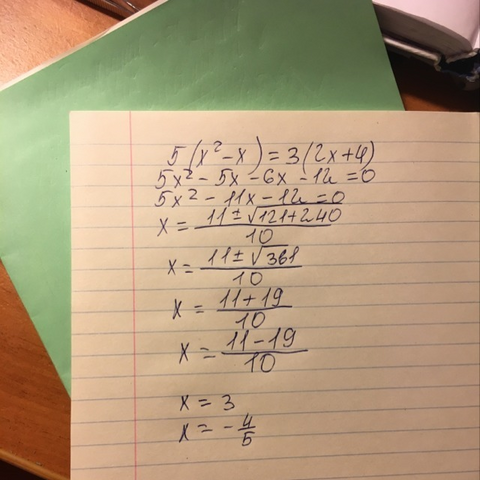 5(x² - x) = 3(2x+4)
5x² - 5x - 6x - 12 = 0
5x² - 11x - 12 = 0
x = (11 ± √121+240)/10
x = (11 ± √361)/10
x = (11+19)/10
x = (11-19)/10
x = 3
x = -4/5